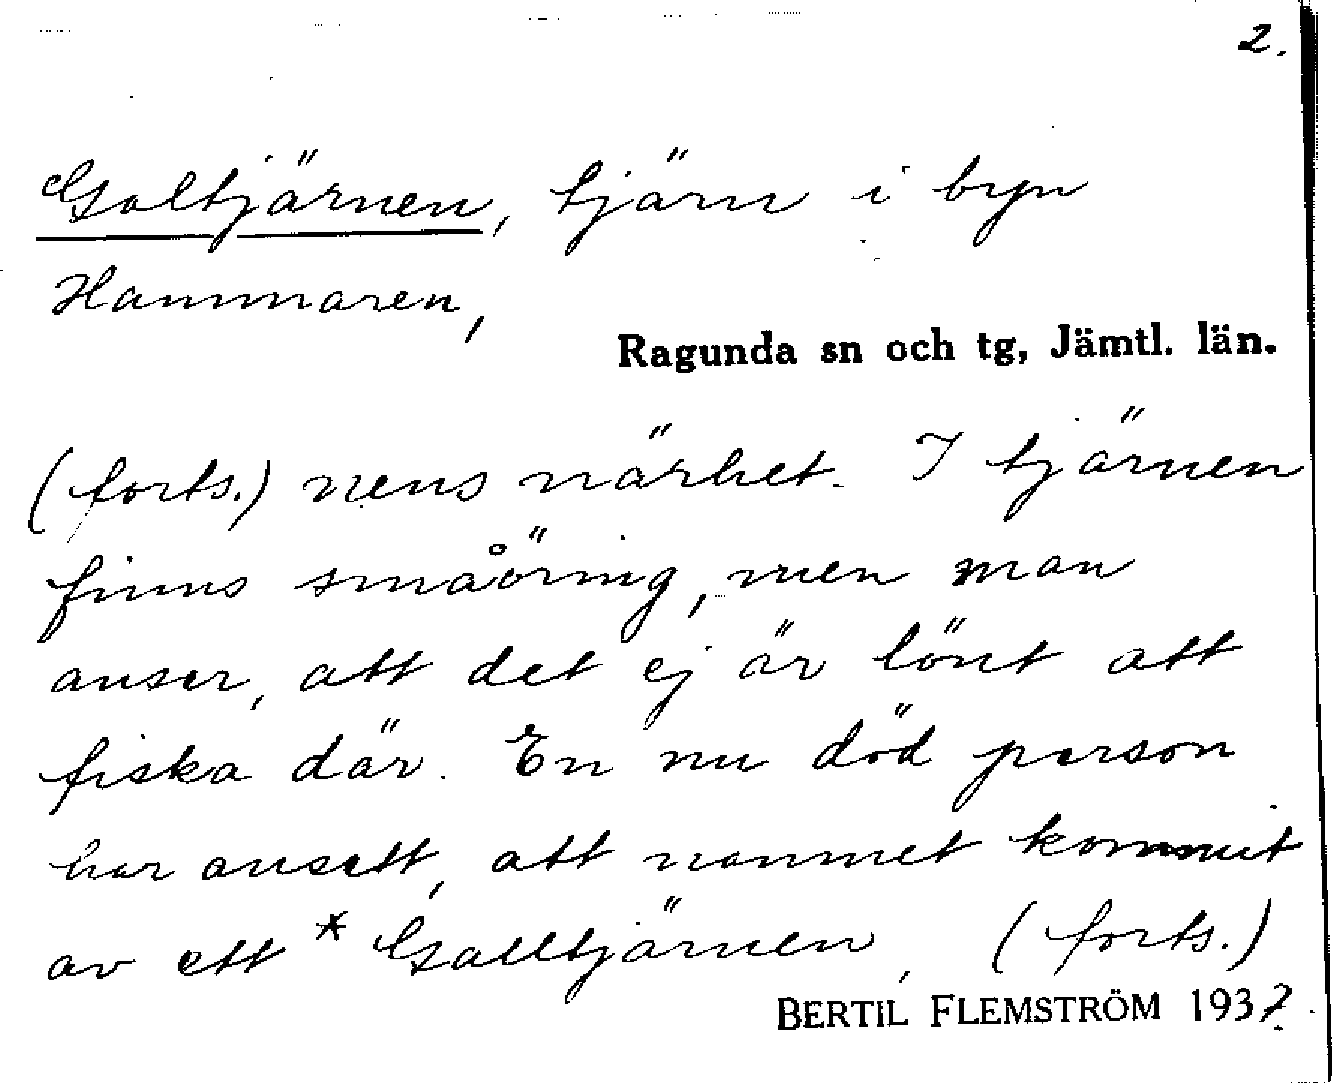 2.
Galtjärnen, tjärn i byn
Hammaren,
Ragunda sn och tg, Jämtl. län.
(forts.) nens närhet. I tjärnen
finns småöring, men man
anser, att det ej är lönt att
fiska där. En nu död person
har ansett, att namnet kommit
av ett * Galltjärnen, (forts.)
BERTIL FLEMSTRÖM 1937